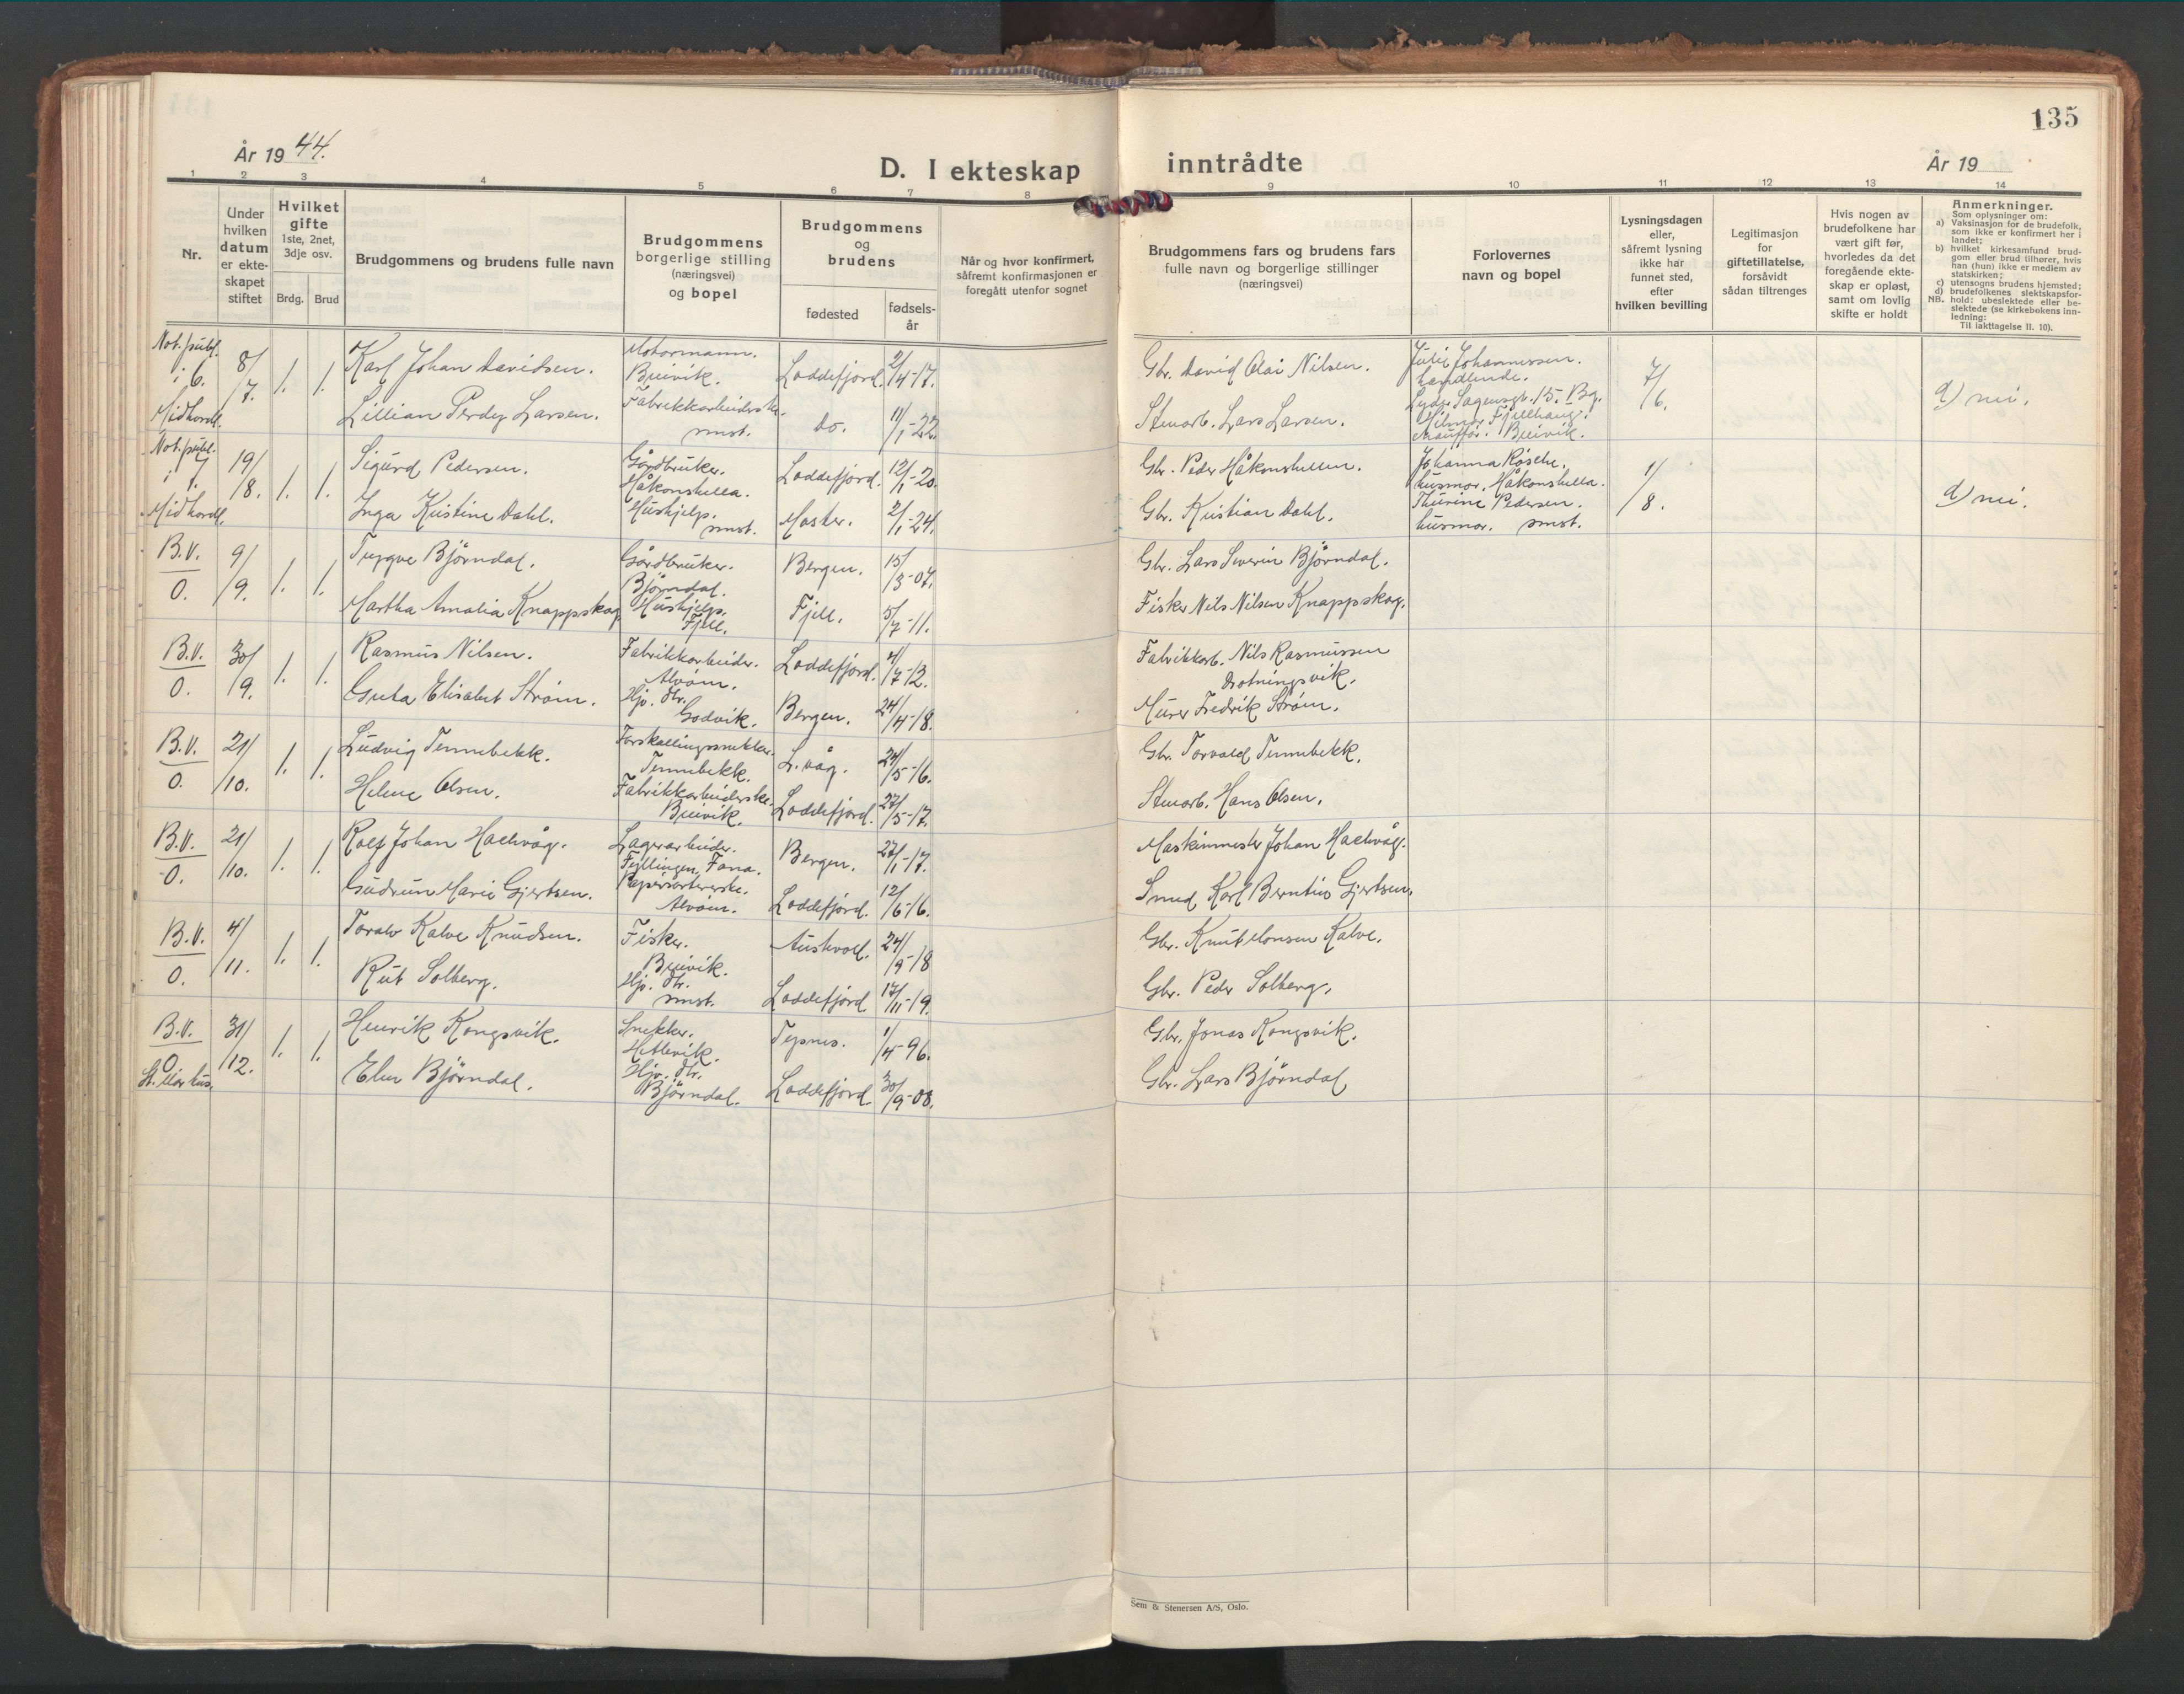 135
År 1944.
D. I ekteskap inntrådte
År 19
1 2 3 4 5 6 7 8 9 10 11 12 13 14
Nr.
Under hvilken datum er ekteskapet stiftet
Hvilket gifte
1ste, 2net, 3dje osv.
Brdg. Brud
Brudgommens og brudens fulle navn
Brudgommens
borgerlige stilling
(næringsvei)
og bopel
Brudgommens
og
brudens
fødested
fødsels-
år
Når og hvor konfirmert,
såfremt konfirmasjonen er
foregått utenfor sognet
Brudgommens fars og brudens fars
fulle navn og borgerlige stillinger
(næringsvei)
Forlovernes
navn og bopel
Lysningsdagen
eller,
såfremt lysning
ikke har
funnet sted,
efter
hvilken bevilling
Legitimasjon
for
giftetillatelse,
forsåvidt
sådan tiltrenges
Hvis nogen av
brudefolkene har
vært gift før,
hvorledes da det
foregående ekte-
skap er opløst,
samt om lovlig
skifte er holdt
Anmerkninger.
Som oplysninger om:
a) Vaksinasjon for de brudefolk,
som ikke er konfirmert her i
landet;
b) hvilket kirkesamfund brud-
gom eller brud tilhører, hvis
han (hun) ikke er medlem av
statskirken;
c) utensogns brudens hjemsted;
d) brudefolkenes slektskapsfor-
hold: ubeslektede eller be-
slektede (se kirkebokens inn-
ledning:
NB. Til iakttagelse II. 10).
Not. publ.
i 6.
Midhordl.
8/7. 1. 1.
Karl Johan Davidsen. Motormann. Breivik. Loddefjord. 2/4-17. Gbr. David Olai Nilsen.
Lillian Perdy Larsen. Fabrikkarbeiderske. smst. do. 11/1-22. Stenarb. Lars Larsen.
Johannessen.
handlende.
Lyder Sagensgt. 15. Bg.
Hilmar Fjellhaug.
Breivik.
7/6.
d) nei.
Not. publ.
i 7.
Midhordl.
19/8. 1. 1.
Sigurd Pedersen. Gårdbruker. Håkonshella. Loddefjord. 12/1-20. Gbr. Peder Håkonshellen.
Inga Kristine Dahl. Hushjelp. smst. Masker. 2/1-24. Gbr. Kristian Dahl.
Johanna
husmor. Håkonshella.
Thurine Pedersen.
husmor. smst.
1/8.
d) nei.
B.V.
O.
9/9. 1. 1.
Trygve Björndal. Gårdbruker. Björndal. Bergen. 15/3-07. Gbr. Lars Severin Björndal.
Martha Amalia Knappskog Hushjelp. Fjell. Fjell. 5/7-11. Fisker Nils Nilsen Knappskog.
B.V.
O.
30/9. 1. 1.
Rasmus Nilsen. Fabrikkarbeider. Alvöen. Loddefjord. 4/7-12. Fabrikkarb. Nils Rasmussen
Drotningsvik.
Elisabet Ström. Hjv. dtr. Godvik. Bergen. 24/4-18. Murer Fredrik Ström.
B.V.
O.
21/10. 1. 1.
Ludvig Tennebekk. Forskallingssnekker. Tennebekk. L.våg. 24/5-16. Gbr. Torvald Tennebekk.
Helene Olsen. Fabrikkarbeiderske. Breivik. Loddefjord. 27/5-17. Stenarb. Hans Olsen.
B.V.
O.
21/10. 1. 1.
Rolf Johan Haelvåg. Lagerarbeider. Fyllingen, Fana. Bergen. 27/1-17. Maskinmester Johan Haelvåg.
Gudrun Marie Gjertsen. Papirsorterske. Alvöen. Loddefjord. 12/6-16. Smed Karl Berntius Gjertsen.
B.V.
O.
4/11. 1. 1.
Toralv Kalve Knudsen. Fisker. Breivik. Austevoll. 24/9-18 Gbr. Knut Monsen Kalve.
Rut Solberg. Hjv. dtr. smst. Loddefjord 17/11-19. Gbr. Peder Solberg.
B.V.
O
St. Mar. hus.
31/12. 1. 1.
Henrik Kongsvik. Snekker. Hetlevik. Tysnes. 1/4-96. Gbr. Jonas Kongsvik.
Elen Björndal. Hjv. dtr. Björndal. Loddefjord. 30/9-08. Gbr. Lars Björndal
Sem & Stenersen A/S, Oslo.